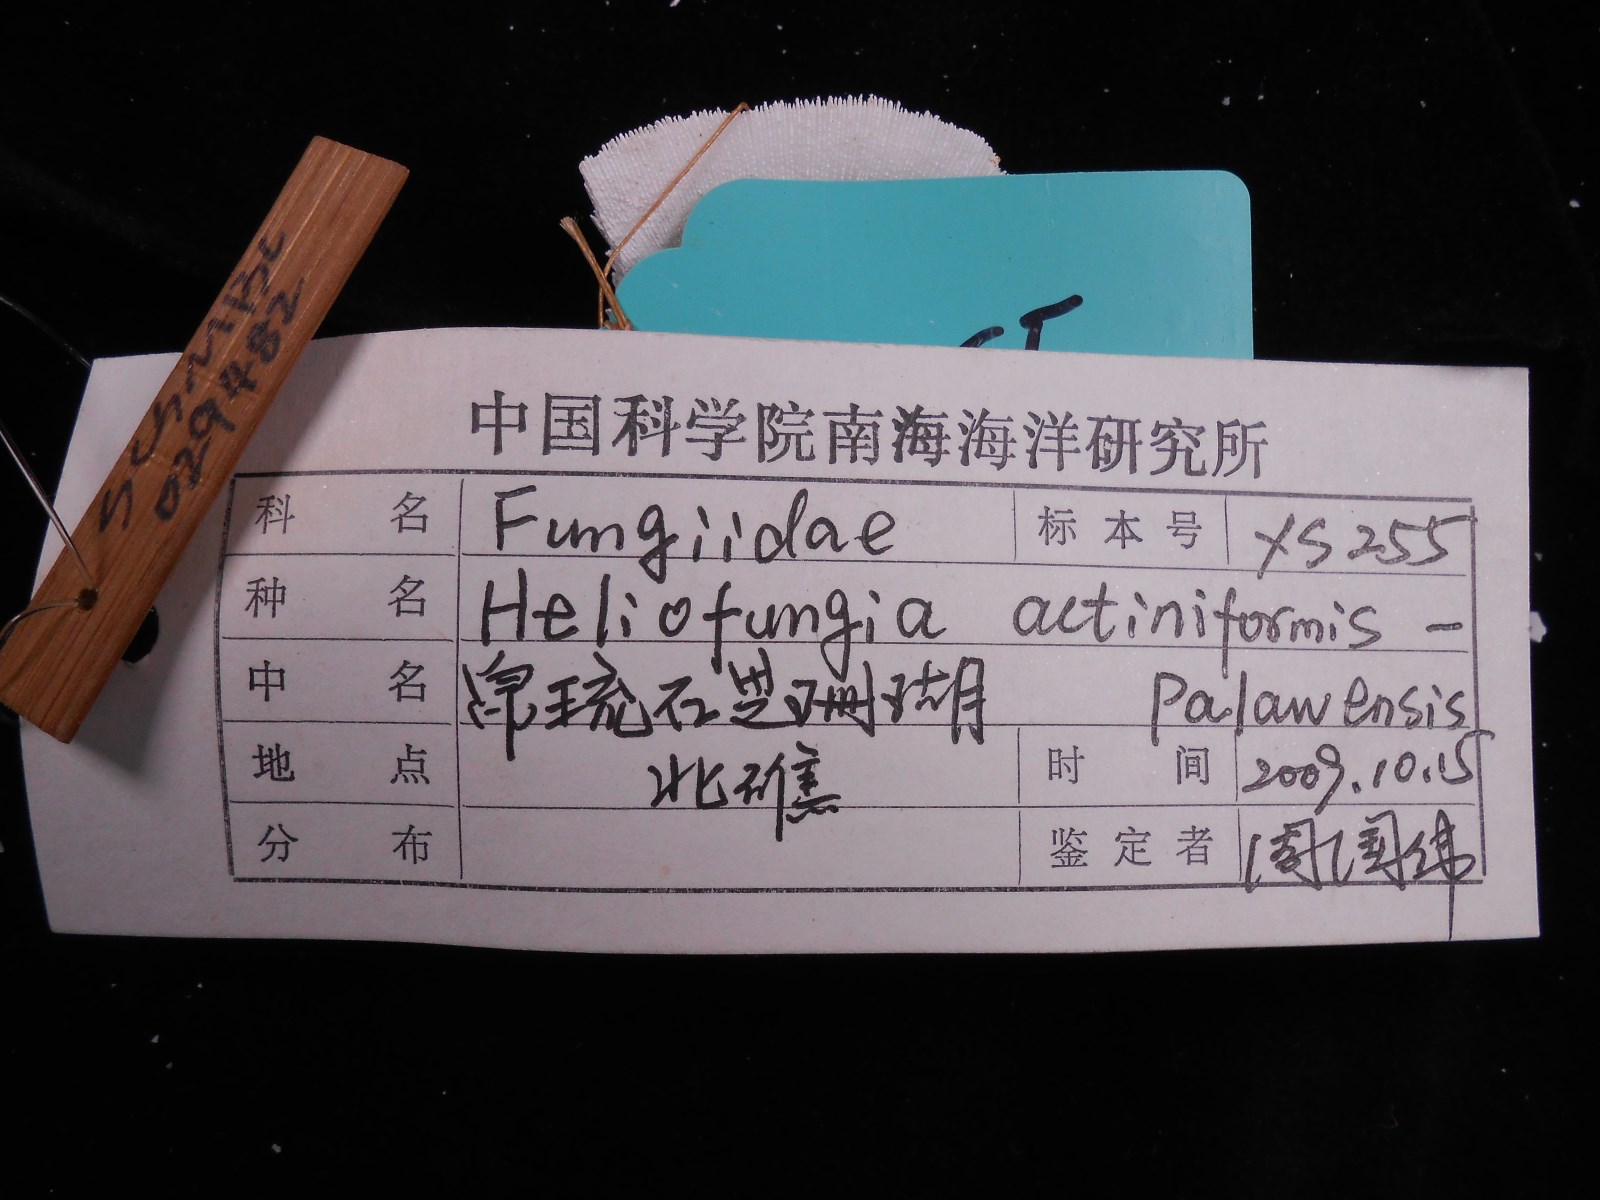 SCSMBC
029482
ST
中国科学院南海海洋研究所
科名 Fungiidae 标本号 XS255
种名 Heliofungia actiniformis -
中名 石芝珊瑚 Palawensis
地点 北礁 时间 2009.10.15
分布 鉴定者 周国伟